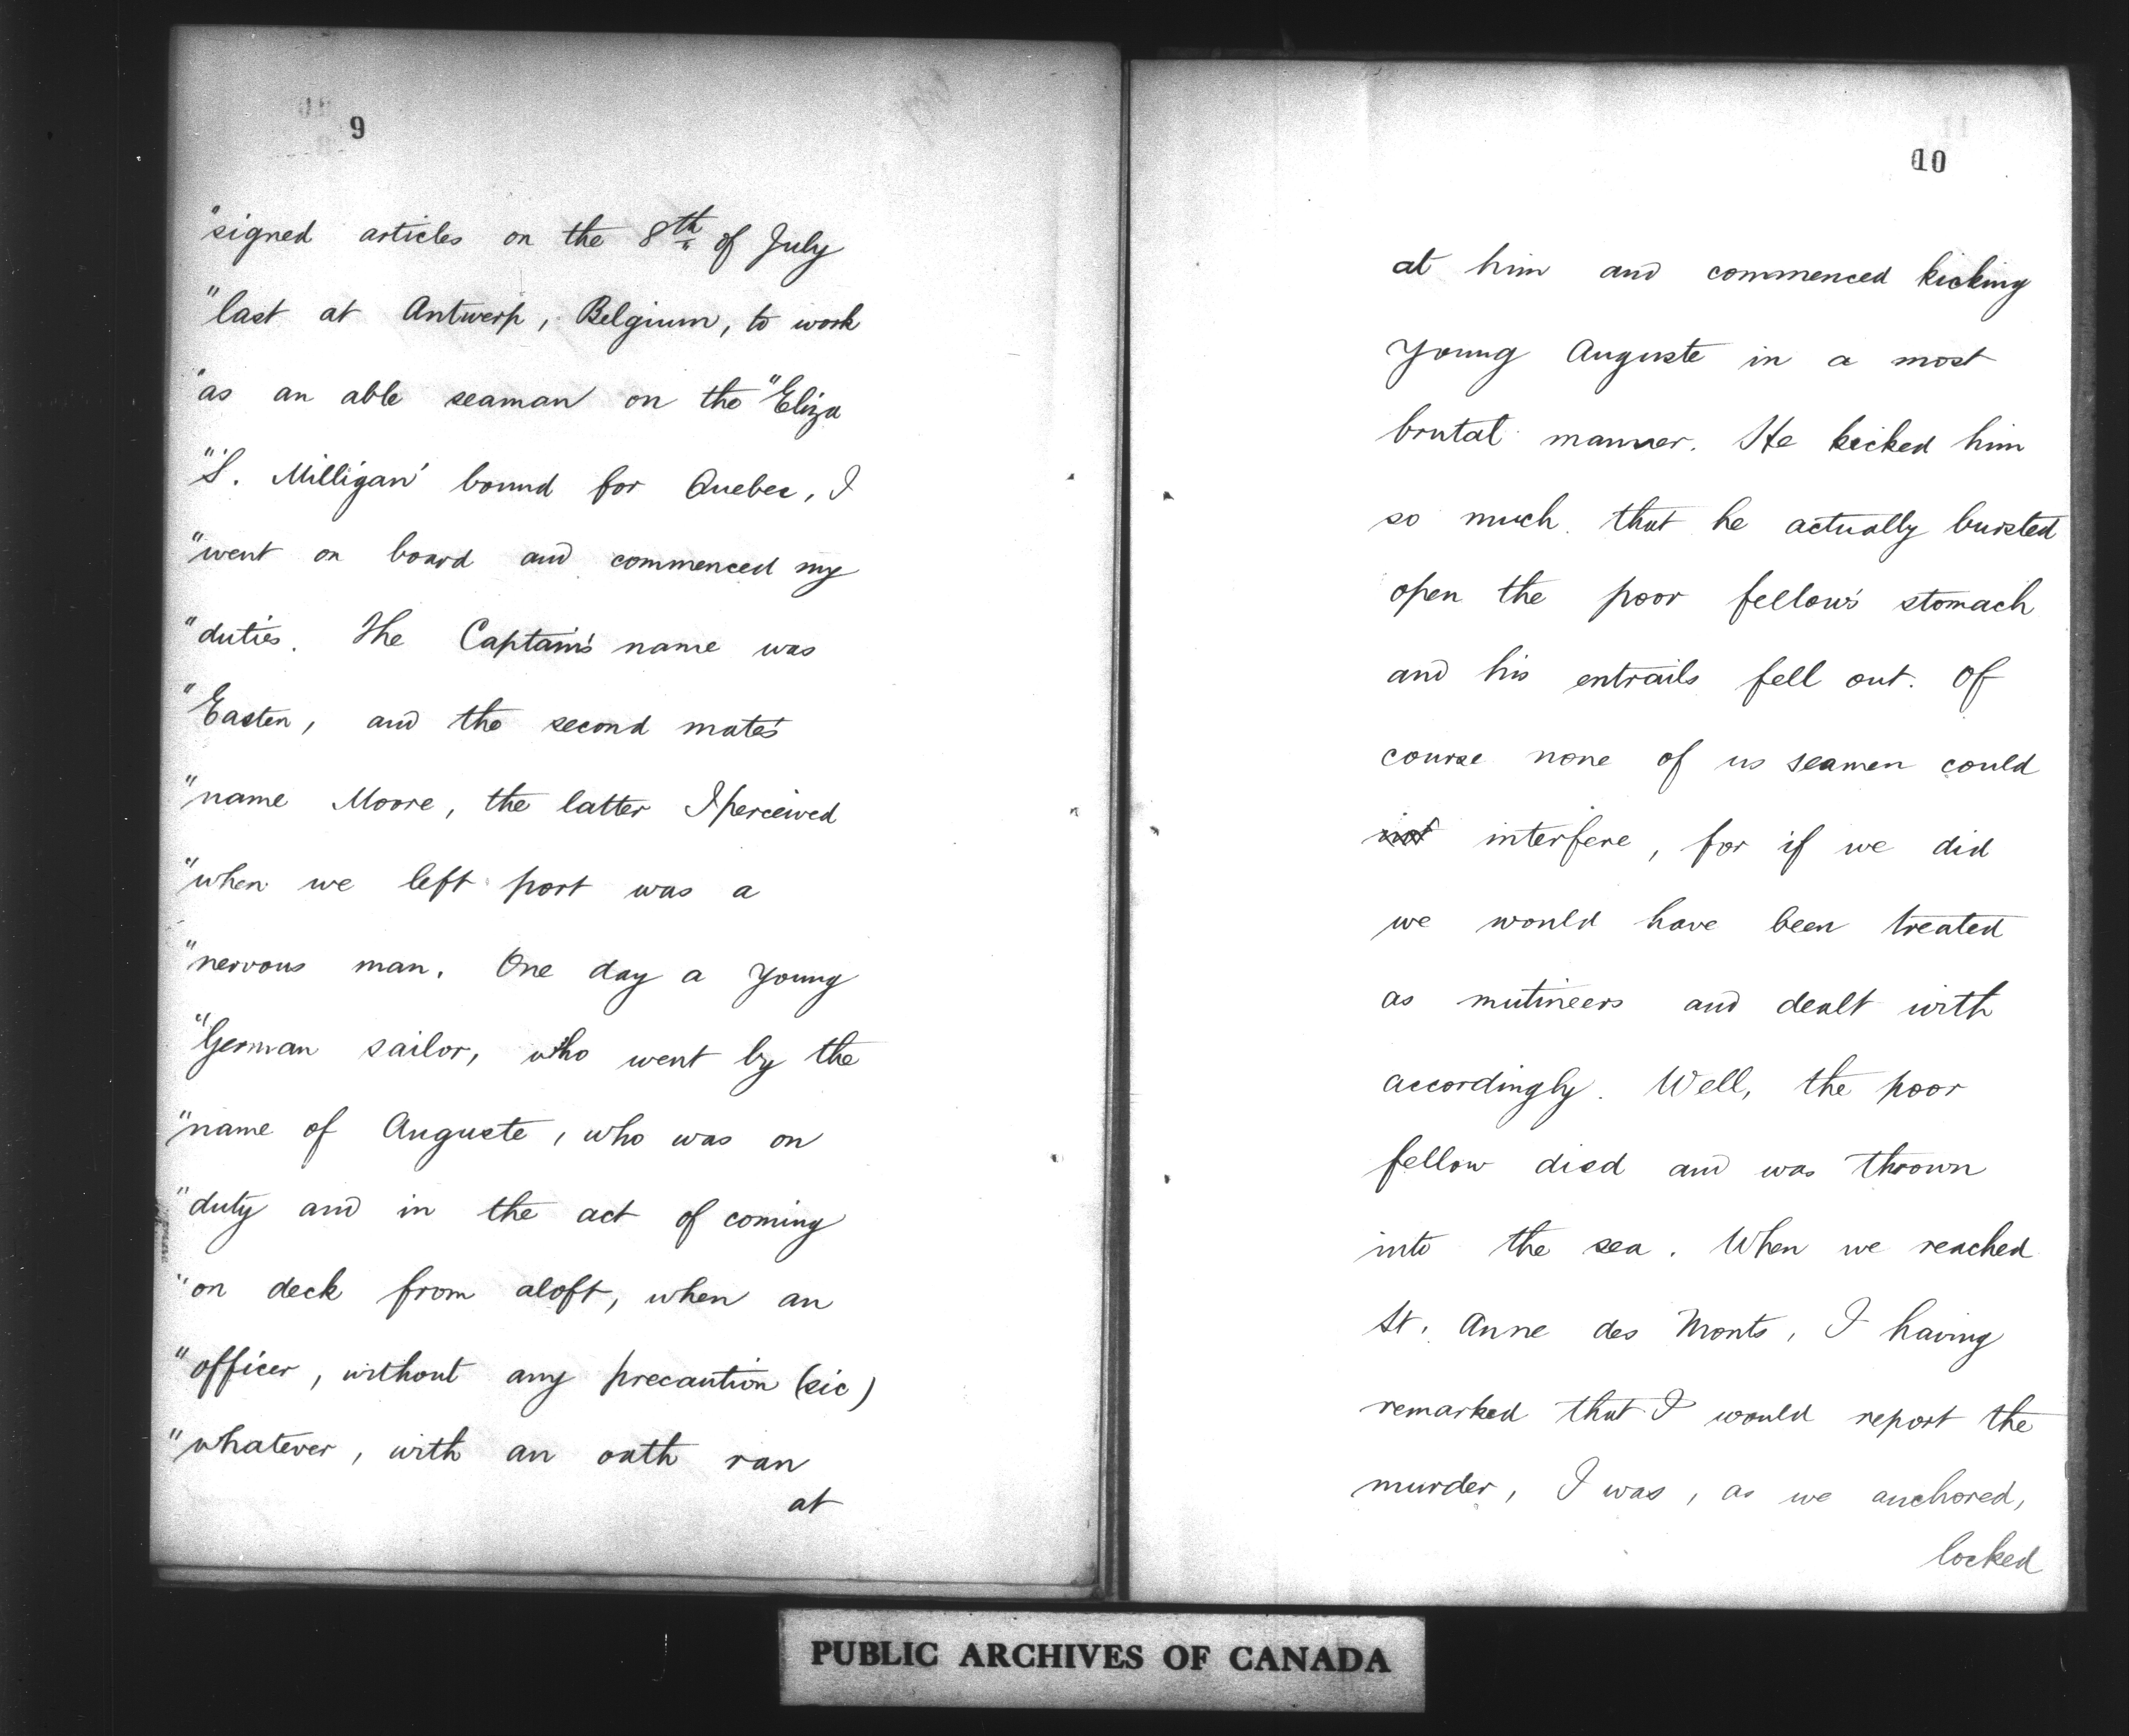 9
"signed articles on the 8th of July
"last at Antwerp, Belgium, to work
"as an able seaman on the "Eliza
"'S. Milligan' bound for Quebec, I
"went on board and commenced my
"duties. The Captain's name was
"Easten, and the second mate's
"name Moore, the latter I perceived
"when we left port was a
"nervous man. One day a young
"German sailor, who went by the
"name of Auguste, who was on
"duty and in the act of coming
"on deck from aloft, when an
"officer, without any precaution (sic)
"whatever, with an oath ran
at
10
at him and commenced kicking
young Auguste in a most
brutal manner. He kicked him
so much that he actually bursted
open the poor fellow's stomach
and his entrails fell out. Of
course none of us seamen could
not interfere, for if we did
we would have been treated
as mutineers and dealt with
accordingly. Well, the poor
fellow died and was thrown
into the sea. When we reached
St. Anne des Monts, I having
remarked that I would report the
murder, I was, as we anchored,
locked
PUBLIC ARCHIVES OF CANADA